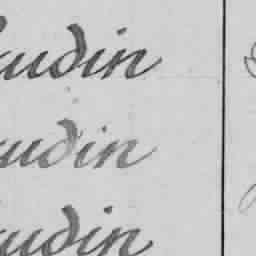 udin
udin
udin